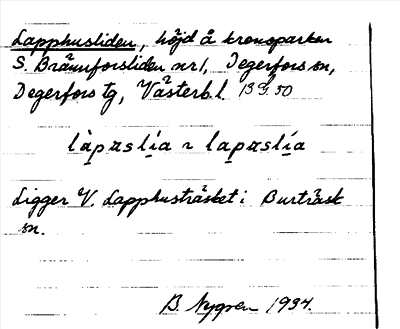 Lapphusliden, höjd å kronoparken
S. Brännforsliden nr 1, Degerfors sn,
Degerfors tg, Västerb. l.
làpɐslía ~ lapɐslía
Ligger V. Lapphusträsket i Burträsk
sn.
B. Nygren 1934.